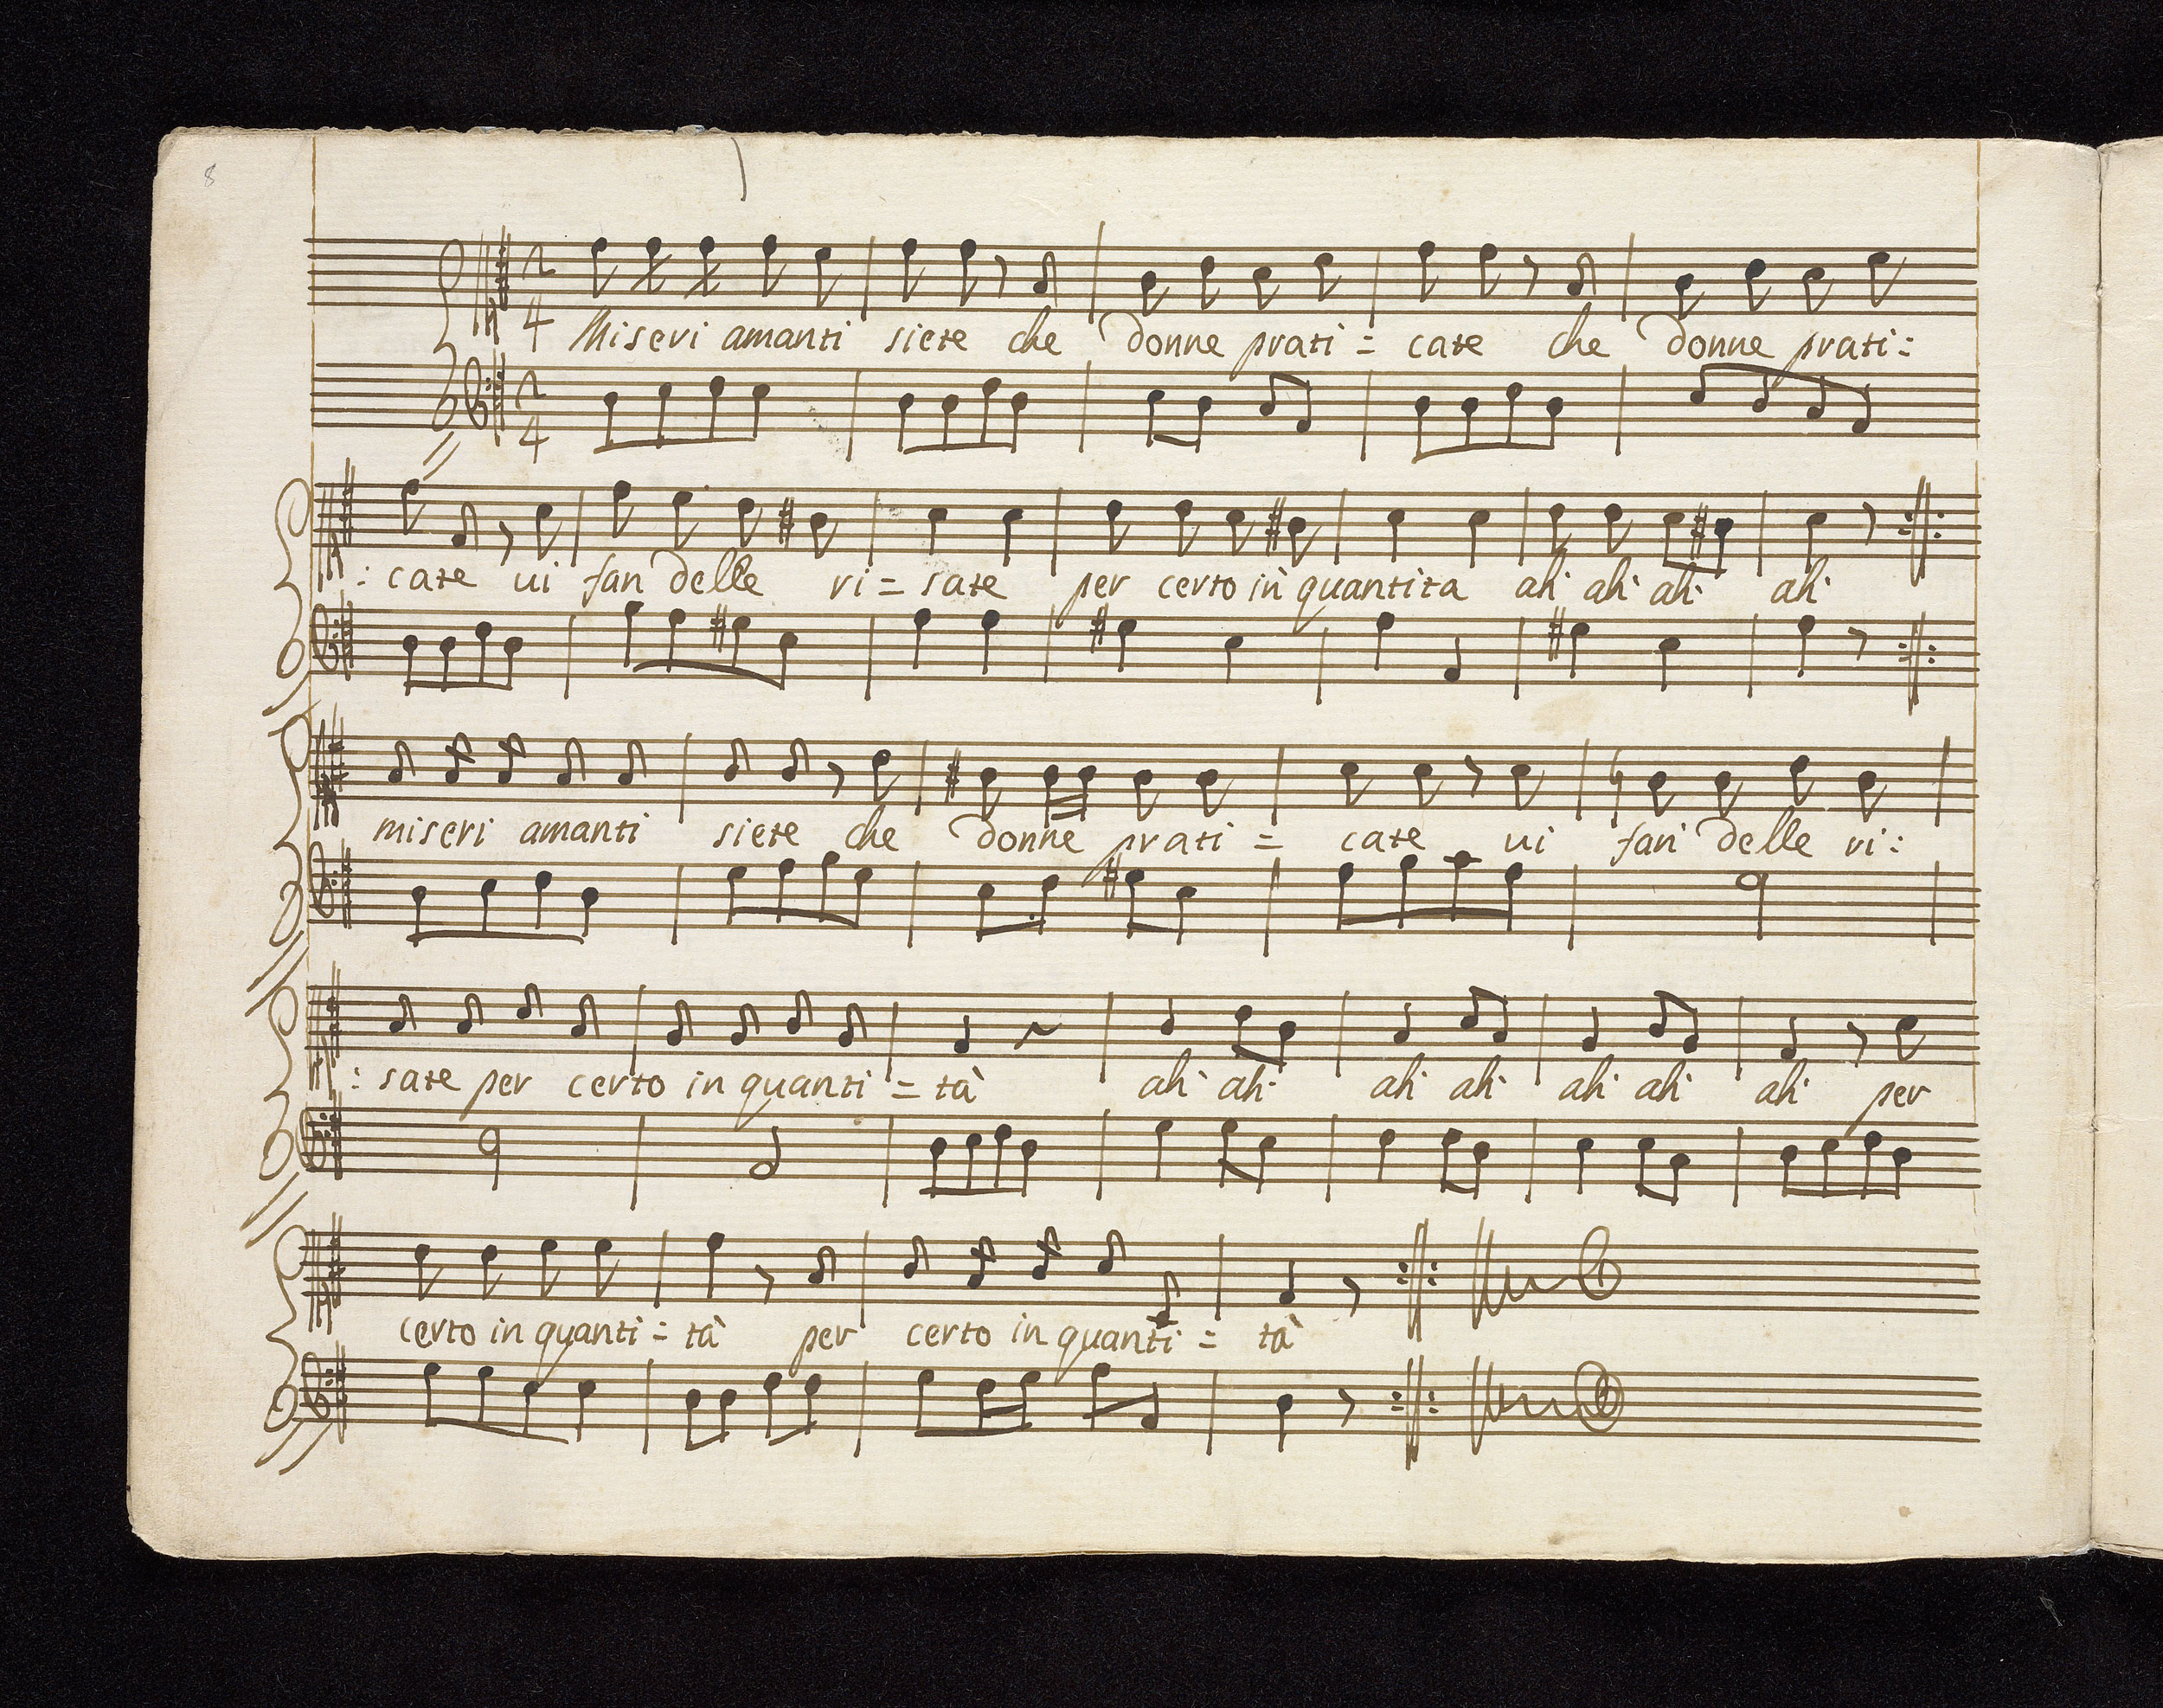 8
2 4
Miseri amanti siete che donne prati = cate che donne prati :
2 4
: cate ui fan delle ri = sate per certo in quantita ah ah ah ah
miseri amanti siete che donne prati = cate ui fan delle ri :
: sate per certo in quanti = tà ah ah ah ah ah ah ah per
certo in quanti = tà per certo in quanti = tà